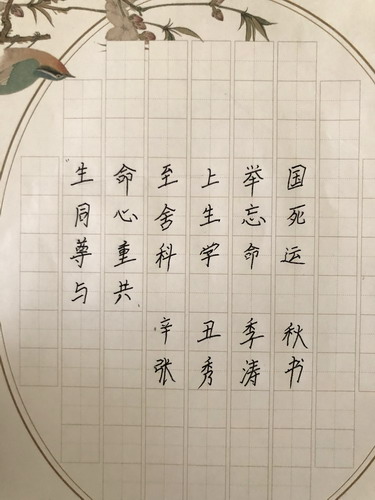 生命至上举国
同心舍生忘死
尊重科学命运
与共
辛丑季秋
张秀涛书